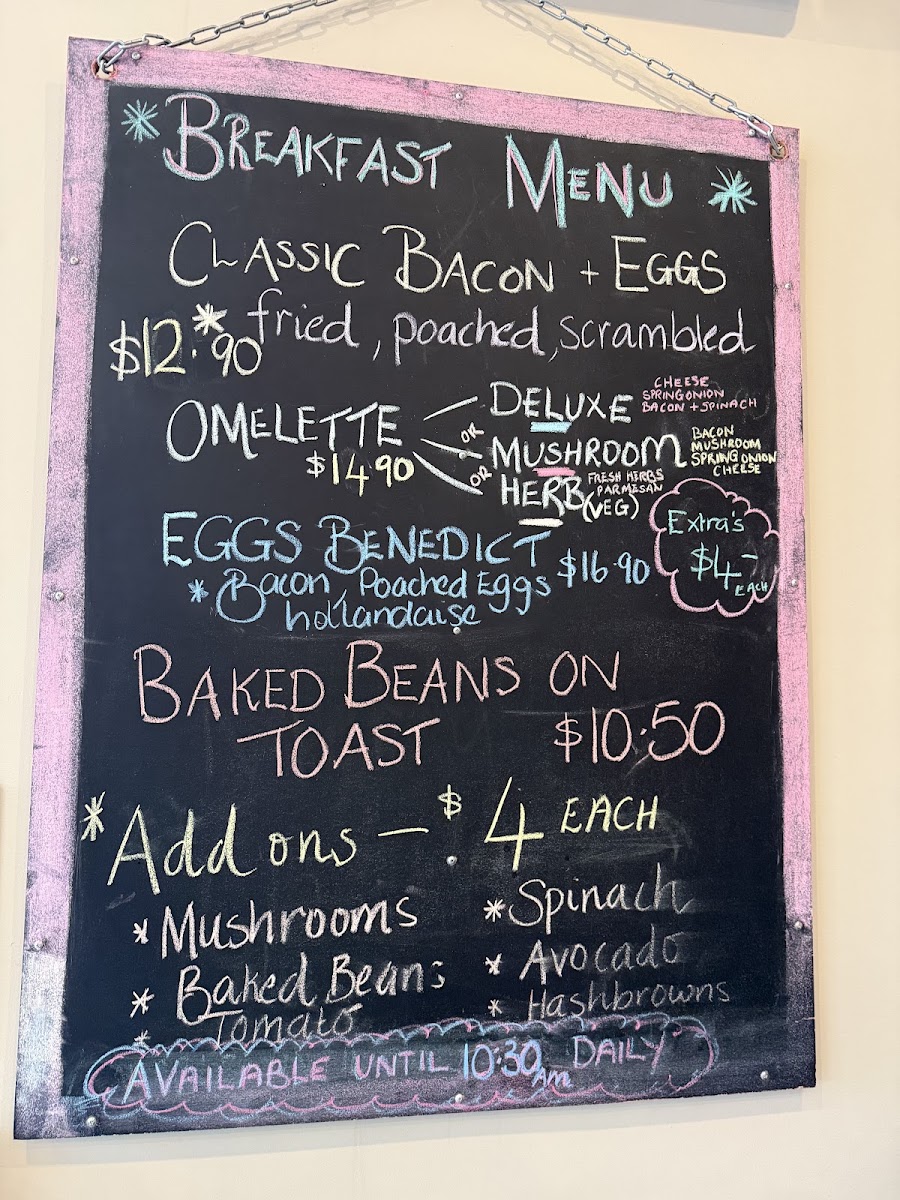 * BREAKFAST MENU *
CLASSIC BACON + EGGS
$12.90 * fried, poached, scrambled
OMELETTE
$14.90
DELUXE
CHEESE
SPRING ONION
BACON + SPINACH
OR
MUSHROOM
BACON
MUSHROOM
SPRING ONION
CHEESE
OR
HERB
(VEG)
FRESH HERBS
PARMESAN
Extra's
$4-
EACH
EGGS BENEDICT
* Bacon, Poached Eggs $16.90
hollandaise
BAKED BEANS ON
TOAST $10.50
* Add ons — $4 EACH
* Mushrooms
* Baked Beans
* Tomato
* Spinach
* Avocado
* Hashbrowns
AVAILABLE UNTIL 10:30 AM DAILY